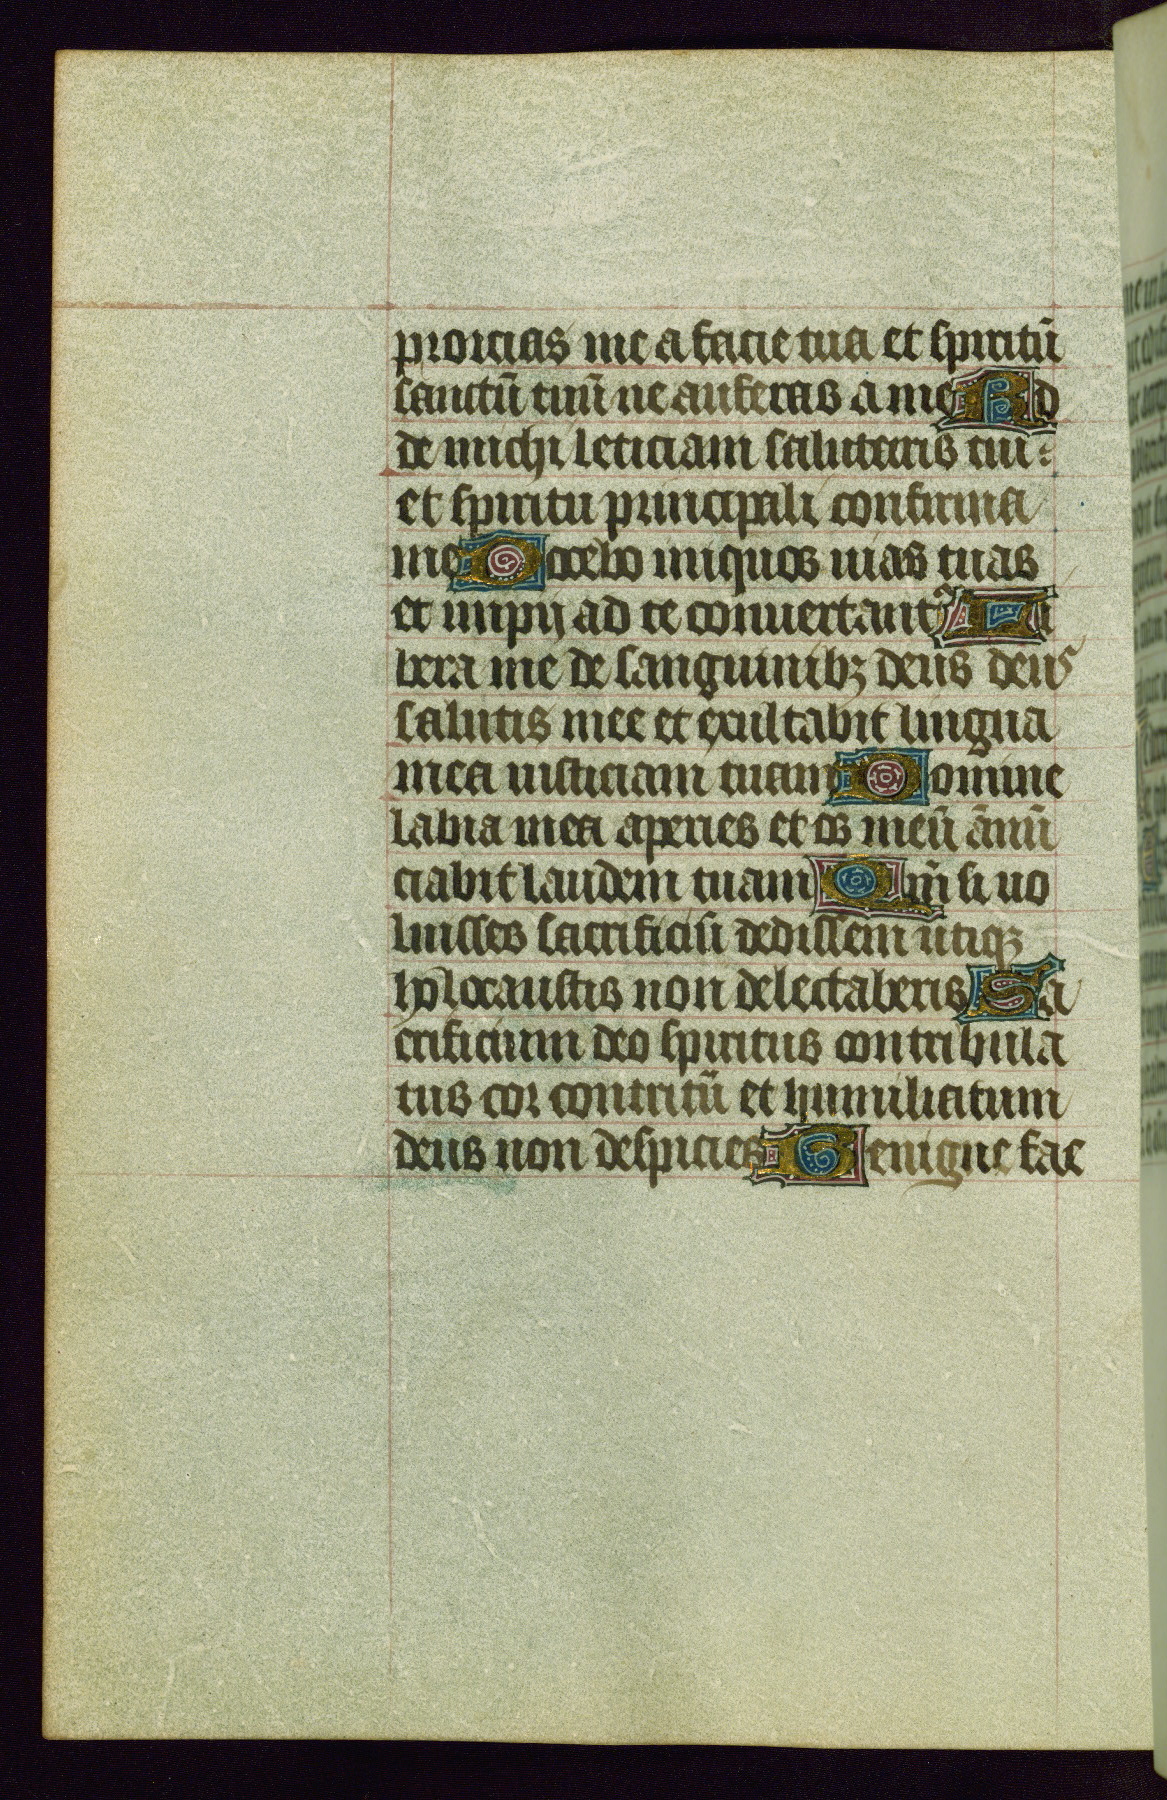 proicias me a facie tua et spiritū
sanctū tuū ne auferas a me Red
de michi leticiam salutaris tui :
et spiritu principali confirma
me Docebo iniquos uias tuas
et impij ad te conuertant᷑ Li
bera me de sanguinibꝫ deus deus
salutis mee et exultabit lingua
mea iusticiam tuam Domine
labia mea aperies et os meū ānū
ciabit laudem tuam Qm̄ si uo
luisses sacrificiū dedissem utiqꝫ
holocaustis non delectaberis Sa
crificium deo spiritus contribula
tus cor contritū et humiliatum
deus non despicies Benigne fac